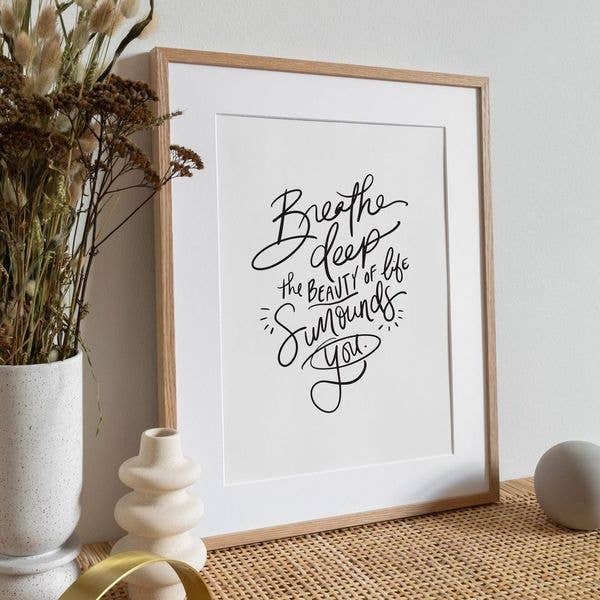 Breathe
deep
the BEAUTY of life
Surrounds
you.